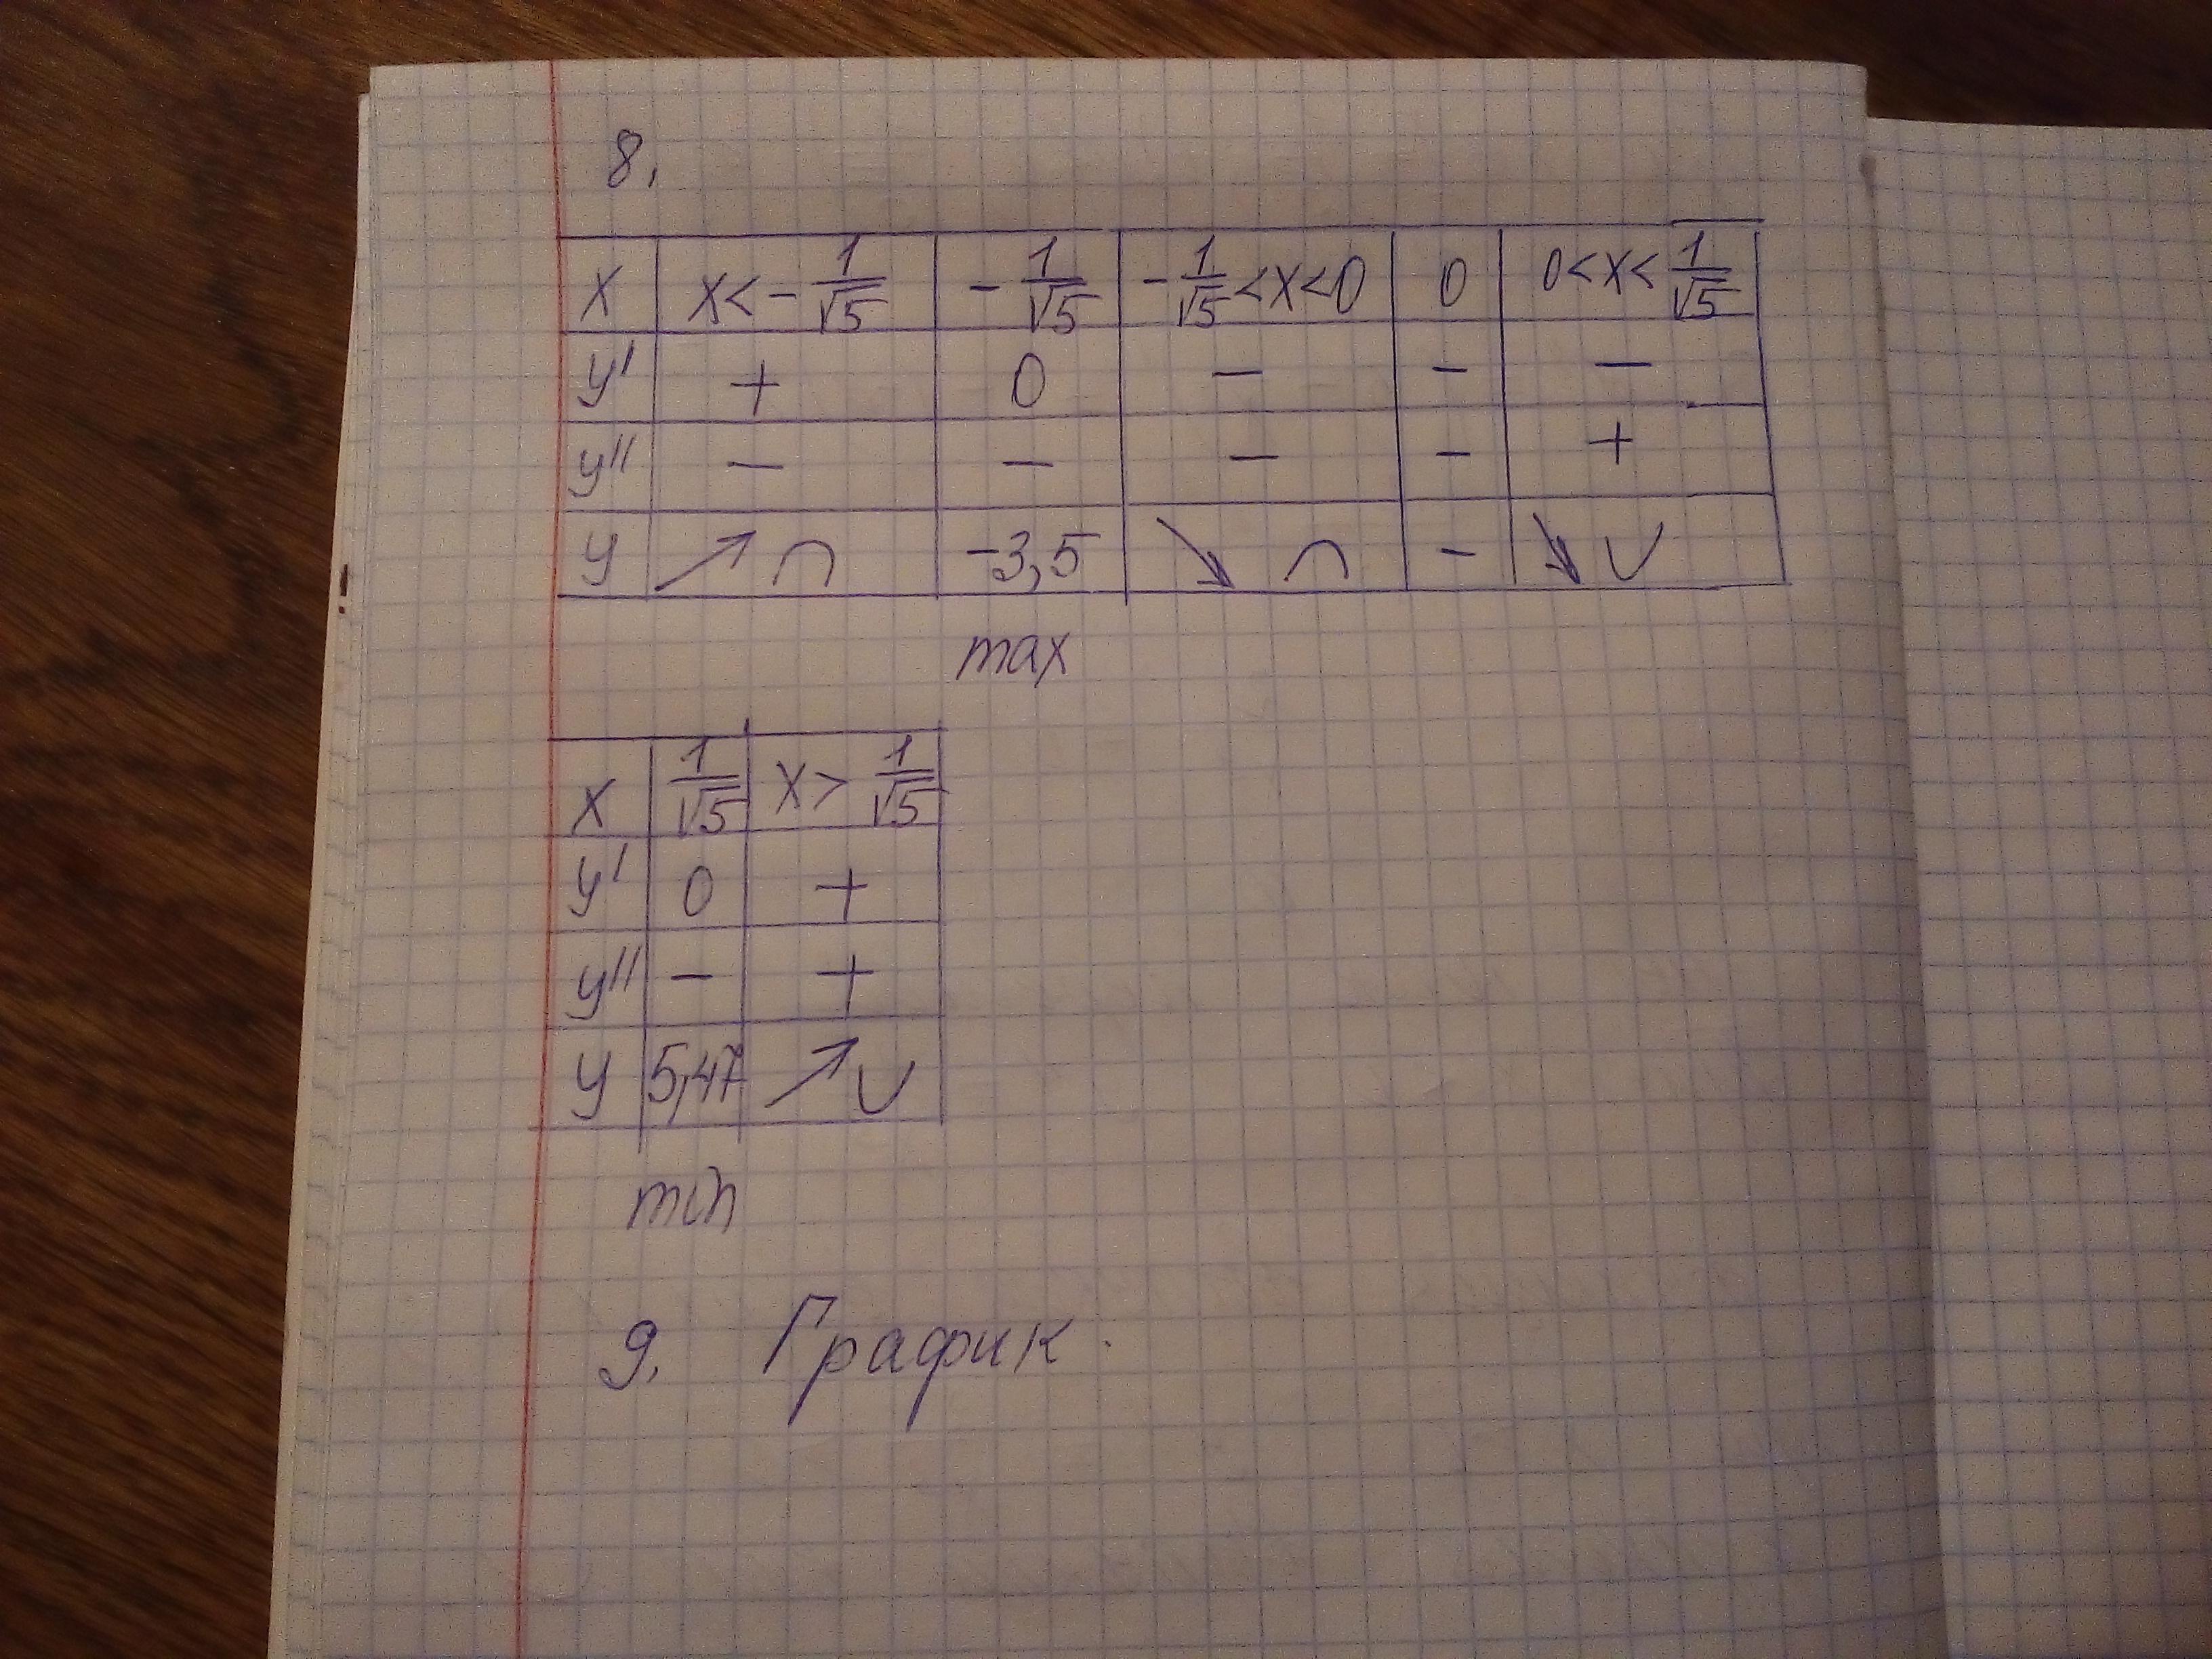 8,
x | x < - 1/√5 | - 1/√5 | - 1/√5 < x < 0 | 0 | 0 < x < 1/√5
y' | + | 0 | − | - | −
y'' | − | − | − | - | +
y | ↗ ∩ | -3,5 | ↘ ∩ | - | ↘ ∪
max
x | 1/√5 | x > 1/√5
y' | 0 | +
y'' | − | +
y | 5,47 | ↗ ∪
min
9, График.